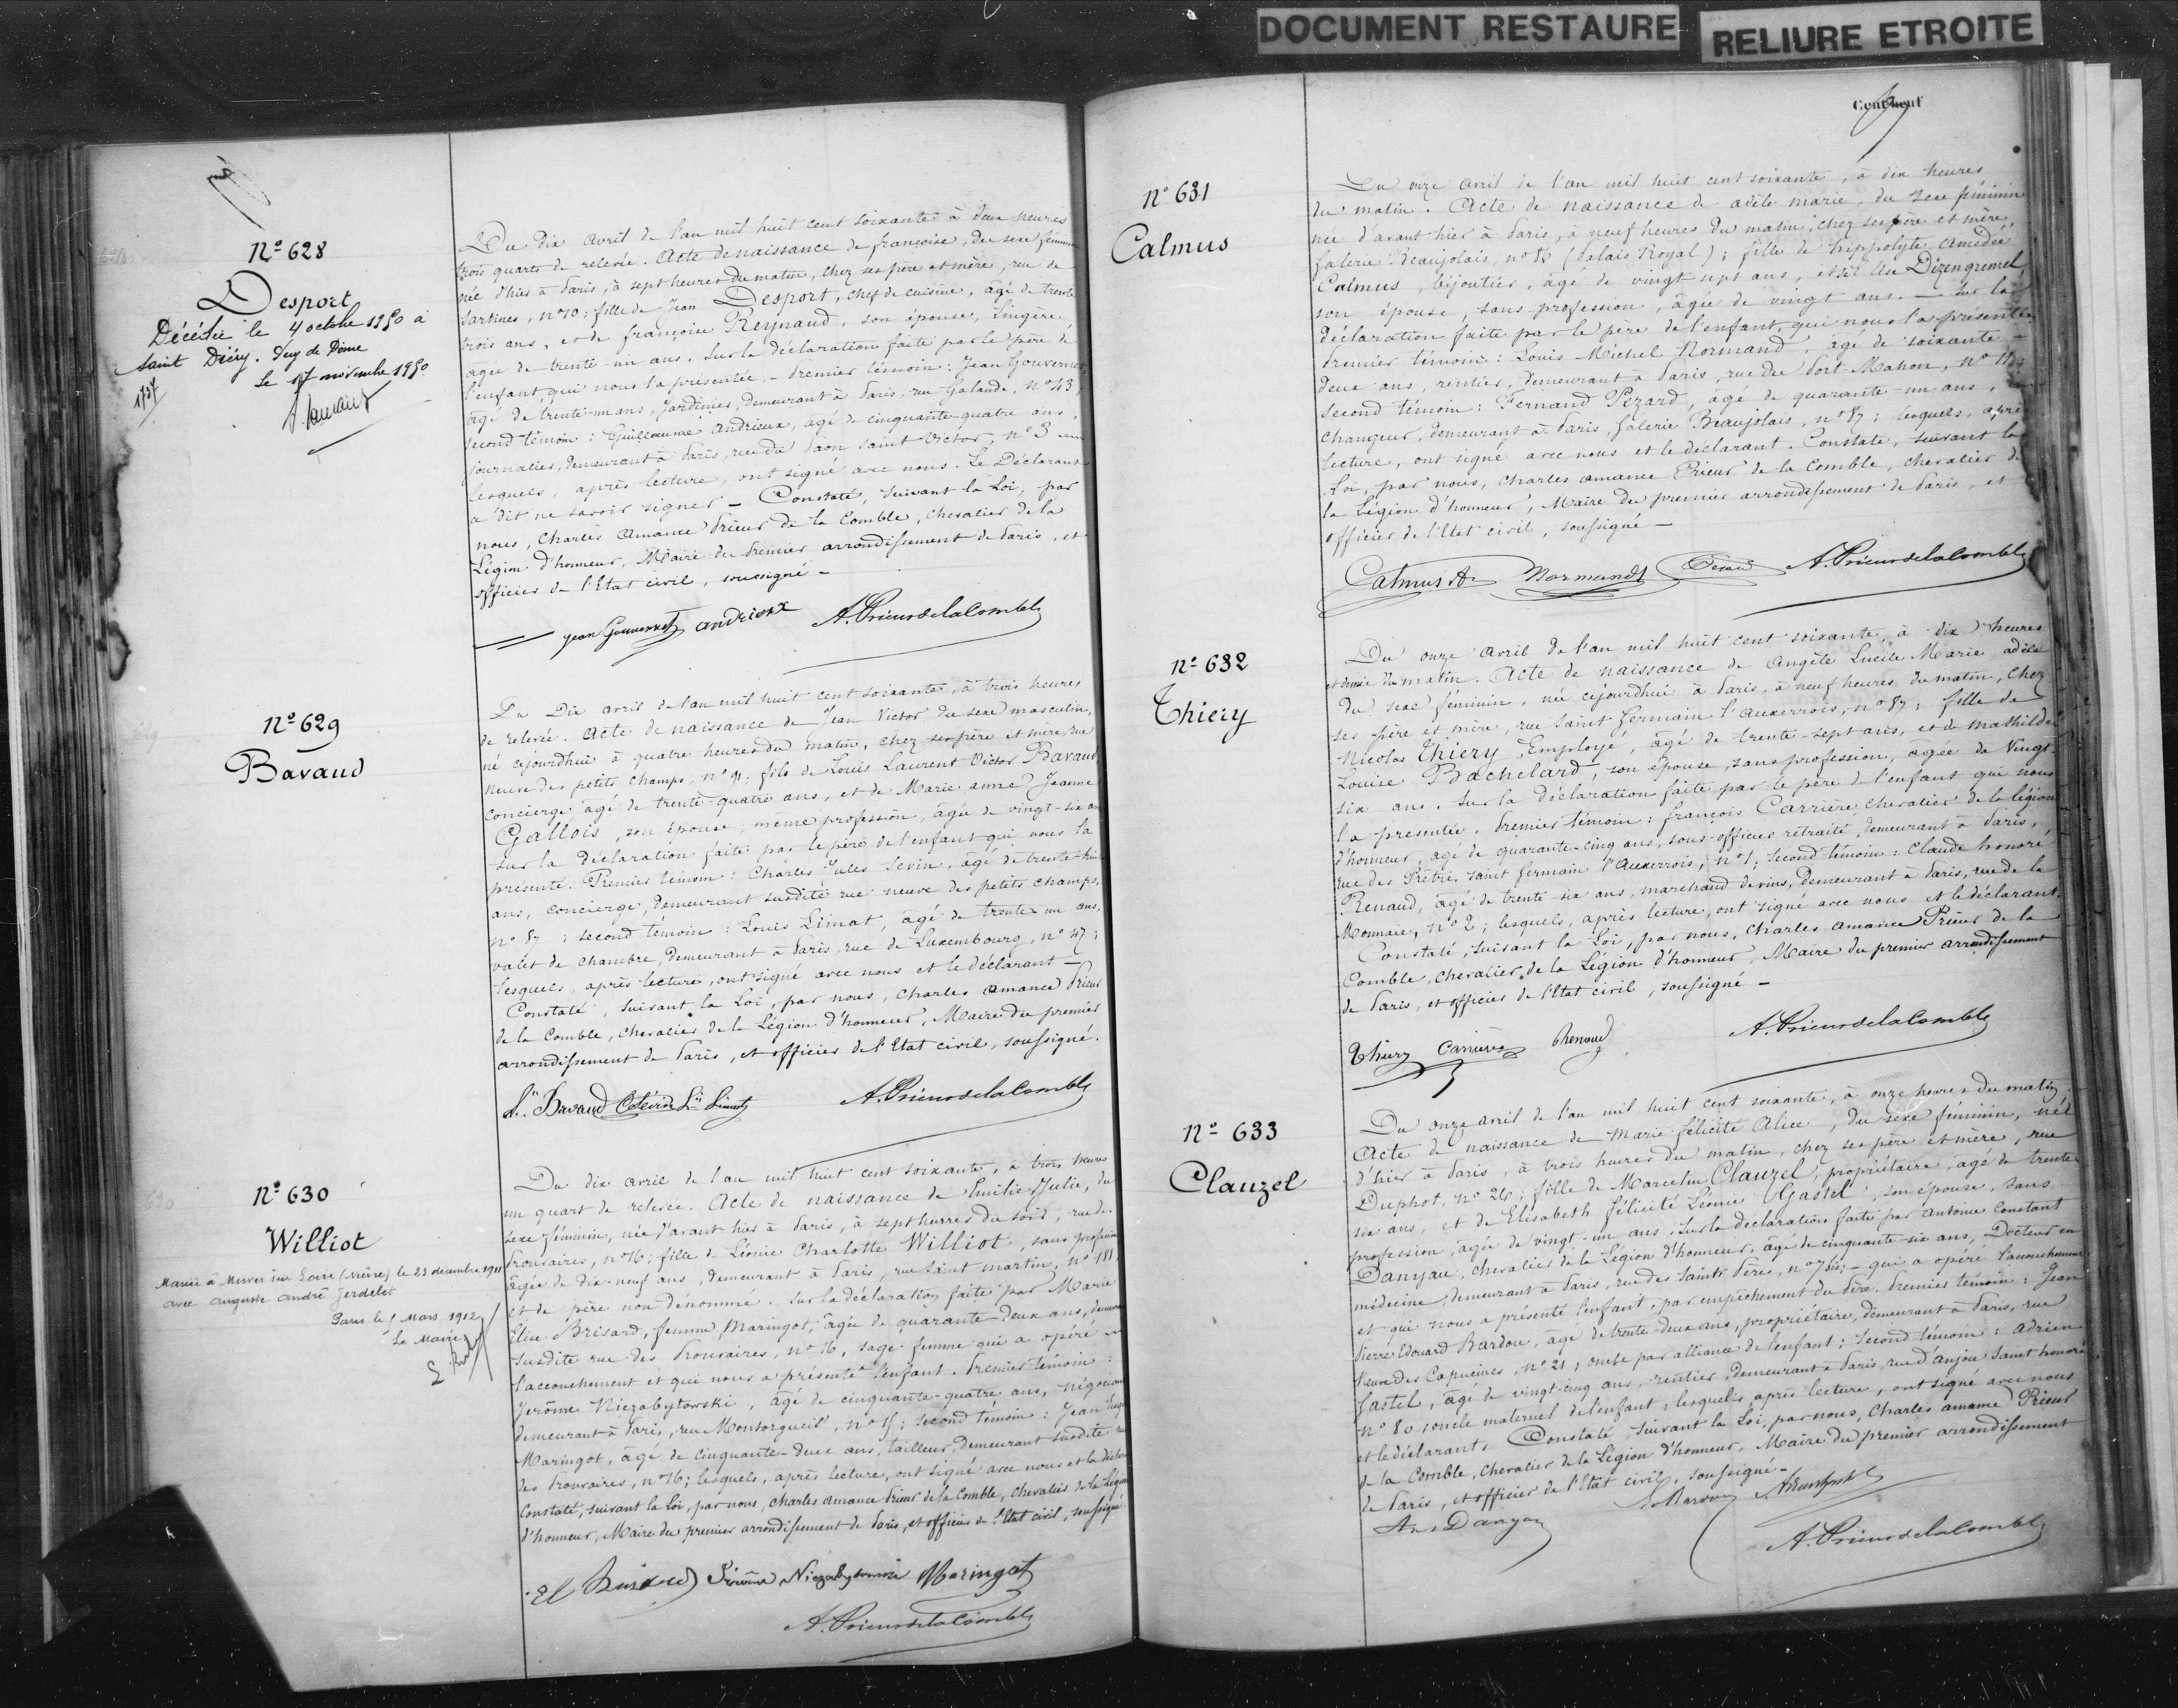 DOCUMENT RESTAURE
RELIURE ETROITE
Nº 628
Desport
Décédée le 4 octobre 1950 à
Saint Diéry. Puy de Dôme
Le 17 novembre 1950
Du dix avril de l'an mil huit cent soixante à deux heures
trois quarts de relevée. Acte de naissance de françoise, du sexe féminin
née d'hier à Paris, à sept heures du matin, chez ses père et mère, rue de
Sartines, nº 10; fille de Jean Desport, chef de cuisine, âgé de trente
trois ans, et de françoise Reynaud, son épouse, lingère,
agée de trente-un ans. Sur la déclaration faite par le père de
l'enfant, qui nous l'a présentée. - Premier témoin: Jean Gouvernet,
âgé de trente-un ans, Jardinier, demeurant à Paris, rue Galande, nº 43,
second témoin: Guillaume Andrieux, âgé de cinquante-quatre ans,
journalier, demeurant à Paris, rue du Paon saint Victor, nº 3
lesquels, après lecture, ont signé avec nous. Le Déclarant
a dit ne savoir signer - Constaté, suivant la Loi, par
nous, Charles Amance Prieur de la Comble, chevalier de la
Légion d'honneur, Maire du Premier arrondissement de Paris, et
officier de l'Etat civil, soussigné -
Jean Gouvernet Andrieux A. Prieur de la Comble
Nº 629
Bavaud
Du Dix avril de l'an mil huit cent soixante, à trois heures
de relevée. Acte de naissance de Jean Victor du sexe masculin,
né cejourdhui à quatre heures du matin, chez ses père et mère, rue
Neuve des petits champs nº 91; fils de Louis Laurent Victor Bavaud
concierge âgé de trente-quatre ans, et de Marie anne Jeanne
Gallois, son épouse, même profession, âgée de vingt-six ans
sur la déclaration faite par le père de l'enfant qui nous l'a
présenté. Premier témoin: Charles Jules Sevin, âgé de trente-huit
ans, concierge, demeurant susdite rue neuve des petits champs,
nº 87; second témoin: Louis Limat, âgé de trente un ans,
valet de chambre, demeurant à Paris, rue de Luxembourg, nº 47;
lesquels, après lecture, ont signé avec nous et le déclarant -
Constaté, suivant la Loi, par nous, Charles Amance Prieur
de la Comble, chevalier de la Légion d'honneur, Maire du premier
arrondissement de Paris, et officier de l'Etat civil, soussigné.
Bavaud A. Prieur de la Comble
Nº 630
Williot
Mariée à Mesves sur Loire (Nièvre) le 23 décembre 1911
avec Auguste André Jerdelet
Paris le 1 Mars 1912
Le Maire
Du dix avril de l'an mil huit cent soixante, à trois heures
un quart de relevée. Acte de naissance de Emilie Julie, du
sexe féminin, née d'avant hier à Paris, à sept heures du soir, rue des
Prouvaires, nº 16; fille de Léonie Charlotte Williot, sans profession
âgée de dix-neuf ans, demeurant à Paris, rue Saint martin, nº 188
et de père non dénommé. Sur la déclaration faite par Marie
Elise Brisard, femme Maringot, âgée de quarante-deux ans,
susdite rue des Prouvaires, nº 16, sage-femme qui a opéré
l'accouchement et qui nous a présenté l'enfant. Premier témoin:
Jerôme Niezabytowski, âgé de cinquante-quatre ans, négociant
demeurant à Paris, rue Montorgueil, nº 15; second témoin: Jean
Maringot, âgé de cinquante-deux ans, tailleur, demeurant susdite rue
des Prouvaires, nº 16; lesquels, après lecture, ont signé avec nous et la
Constaté, suivant la Loi, par nous, Charles Amance Prieur de la Comble, chevalier de la Légion
d'honneur, Maire du premier arrondissement de Paris, et officier de l'Etat civil, soussigné.
Niezabytowski Maringot
A. Prieur de la Comble
Nº 631
Calmus
Du onze avril de l'an mil huit cent soixante, à dix heures
du matin. Acte de naissance de adèle marie, du sexe féminin
née d'avant hier à Paris, à neuf heures du matin, chez ses père et mère,
Galerie Beaujolais, nº (Palais Royal); fille de hippolyte Amédée
Calmus, bijoutier, âgé de vingt sept ans, et de Dizengremel,
son épouse, sans profession, âgée de vingt ans. - Sur la
déclaration faite par le père de l'enfant, qui nous l'a présentée
Premier témoin: Louis Michel Normand, âgé de soixante
deux ans, rentier, demeurant à Paris, rue du Port Mahon, nº
second témoin: Fernand Pezard, âgé de quarante-un ans,
changeur, demeurant à Paris, Galerie Beaujolais, nº 87; lesquels, après
lecture, ont signé avec nous et le déclarant. Constaté, suivant la
Loi, par nous, Charles amance Prieur de la Comble, chevalier de
la Légion d'honneur, Maire du premier arrondissement de Paris, et
officier de l'Etat civil, soussigné -
Calmus Normand A. Prieur de la Comble
Nº 632
Thiery
Du onze avril de l'an mil huit cent soixante, à dix heures
et demie du matin. Acte de naissance de Angèle Lucile Marie adèle
du sexe féminin, née cejourdhui à Paris, à neuf heures du matin, chez
ses père et mère, rue Saint Germain l'Auxerrois, nº 87; fille de
Nicolas Thiery, Employé, âgé de trente-sept ans, et de Mathilde
Louise Bachelard, son épouse, sans profession, agée de Vingt
six ans. Sur la déclaration faite par le père de l'enfant qui nous
l'a présentée. Premier témoin: françois Carrière chevalier de la légion
d'honneur, âgé de quarante-cinq ans, sous-officier retraité, demeurant à Paris,
rue des Prêtres saint Germain l'Auxerrois, nº 1; second témoin: Claude honoré
Renaud, âgé de trente-six ans, marchand de vins, demeurant à Paris, rue de la
Monnaie, nº 2; lesquels, après lecture, ont signé avec nous et le déclarant.
Constaté, suivant la Loi, par nous, Charles Amance Prieur de la
Comble, chevalier de la Légion d'honneur, Maire du premier arrondissement
de Paris, et officier de l'Etat civil, soussigné -
Thiery Carrière Renaud A. Prieur de la Comble
Nº 633
Clauzel
Du onze avril de l'an mil huit cent soixante, à onze heures du matin.
Acte de naissance de Marie félicité Alice, du sexe féminin, née
d'hier à Paris, à trois heures du matin, chez ses père et mère, rue
Duphot, nº 26; fille de Marcelin Clauzel, propriétaire, âgé de trente
six ans, et de Elisabeth félicité Léonie Gastel, son épouse, sans
profession, âgée de vingt-un ans. Sur la déclaration faite par Antoine Constant
Danyau, chevalier de la Légion d'honneur, âgé de cinquante-six ans, Docteur en
médecine, demeurant à Paris, rue des Saints Pères, nº 7 bis; - qui a opéré l'accouchement
et qui nous a présenté l'enfant, par empêchement du Père. Premier témoin: Jean
Pierre Edouard Bardou, âgé de trente-deux ans, propriétaire, demeurant à Paris, rue
Neuve des Capucines, nº 21, oncle par alliance de l'enfant; second témoin: Adrien
Gastel, âgé de vingt-cinq ans, rentier, demeurant à Paris, rue d'anjou Saint honoré
nº 80 oncle maternel de l'enfant; lesquels, après lecture, ont signé avec nous
et le déclarant. Constaté, suivant la Loi, par nous, Charles Amance Prieur
de la Comble, chevalier de la Légion d'honneur, Maire du premier arrondissement
de Paris, et officier de l'Etat civil, soussigné -
Danyau
A. Prieur de la Comble